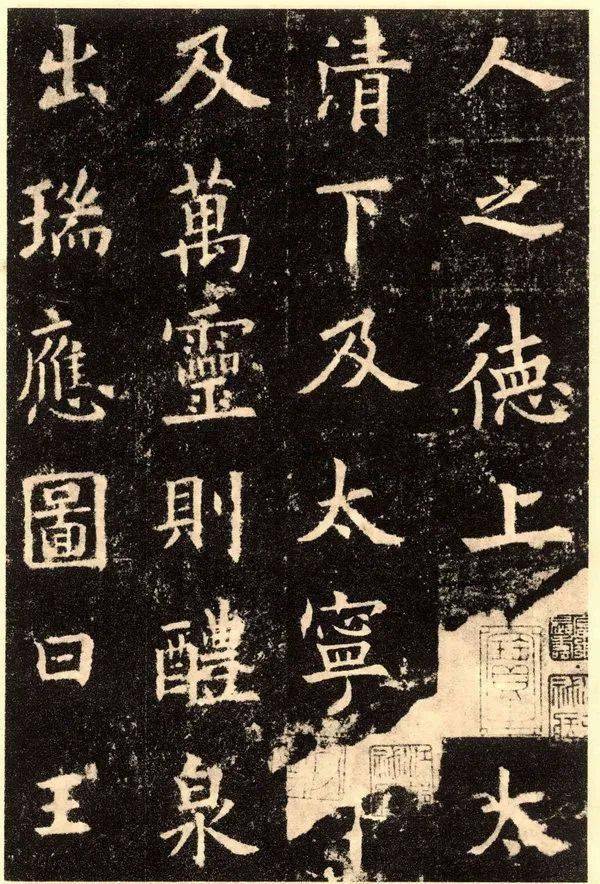 人之德上太
清下及太寧下
及萬靈則醴泉
出瑞應圖曰王